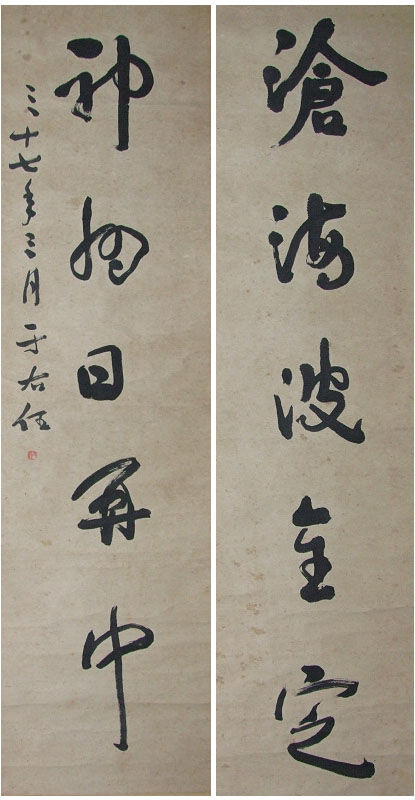 滄海波全定
神州日再中
三十七年三月于右任